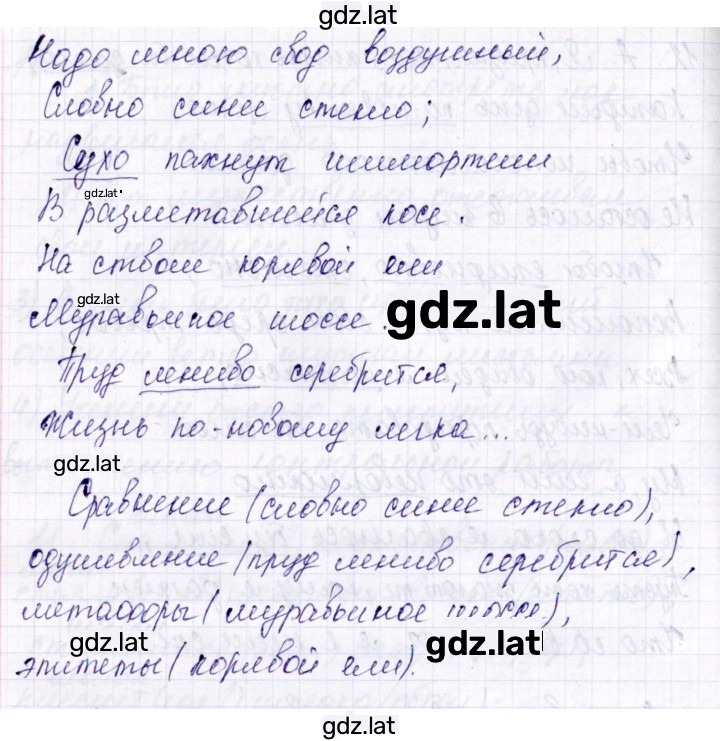 gdz.lat
Надо мною свод воздушный,
Словно синее стекло;
Сухо пахнут иммортели
gdz.lat
В разметавшейся косе.
На стволе корявой ели
gdz.lat
Муравьиное шоссе.
gdz.lat
Пруд лениво серебрится,
Жизнь по-новому легка...
gdz.lat
Сравнение (словно синее стекло),
одушевление (пруд лениво серебрится),
метафоры (муравьиное шоссе),
gdz.lat
gdz.lat
эпитеты (корявой ели).
gdz.lat